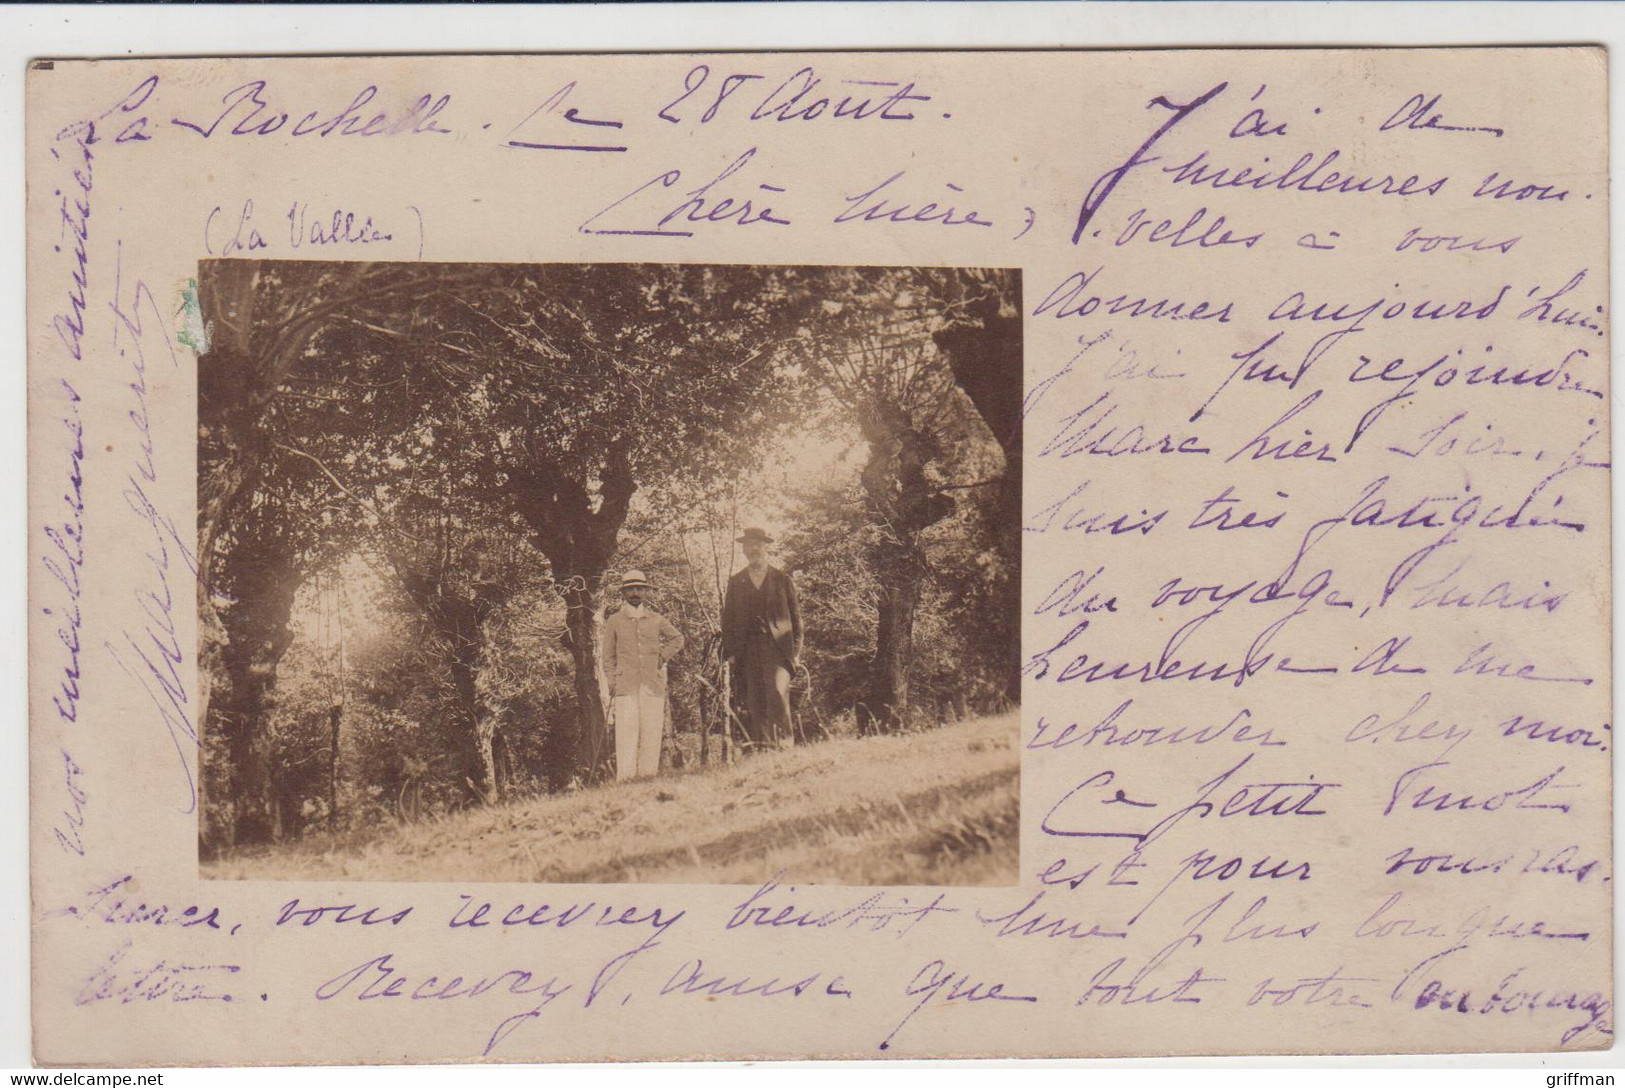 La Rochelle. le 28 Août.
(La Vallée)
Chère Mère,
J'ai de
meilleures nou-
-velles à vous
donner aujourd'hui.
J'ai pu rejoindre
Marc hier soir. je
suis très fatiguée
du voyage, mais
heureuse de me
retrouver chez moi.
Ce petit mot
est pour vous ras-
surer, vous recevrez bientôt une plus longue
lettre. Recevez, ainsi que tout votre entourage
nos meilleures amitiés
Marguerite
griffman